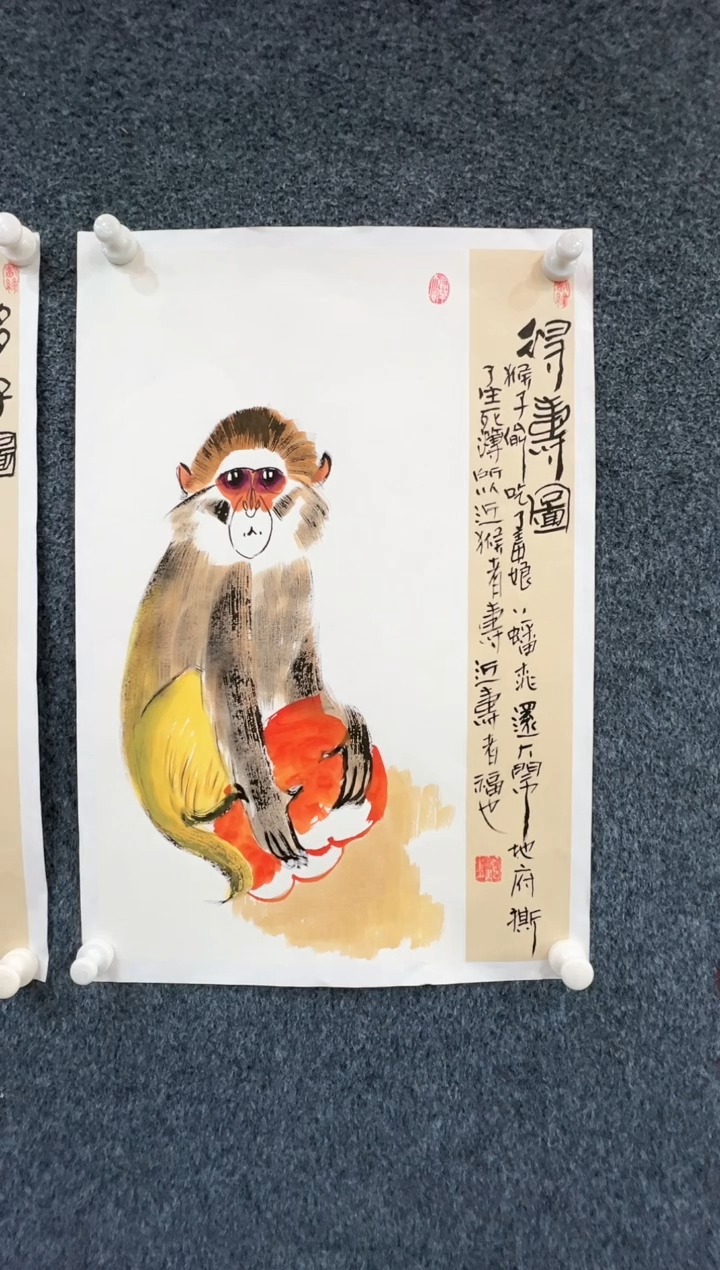 得壽圖
猴子偷吃了王母娘々蟠桃還大鬧地府撕
了生死簿所以近猴者壽近壽者福也
子圖